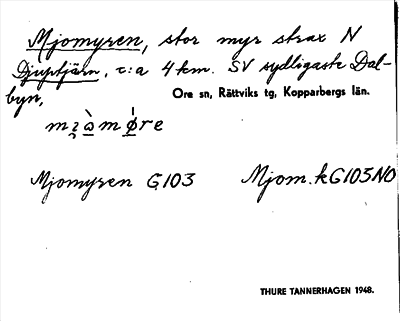 Mjomyren, stor myr strax N
Djuptjärn, c:a 4 km. SV sydligaste Dal-
byn,
Ore sn, Rättviks tg, Kopparbergs län.
Mjomyren G103
Mjom. kG103NO
THURE TANNERHAGEN 1948.